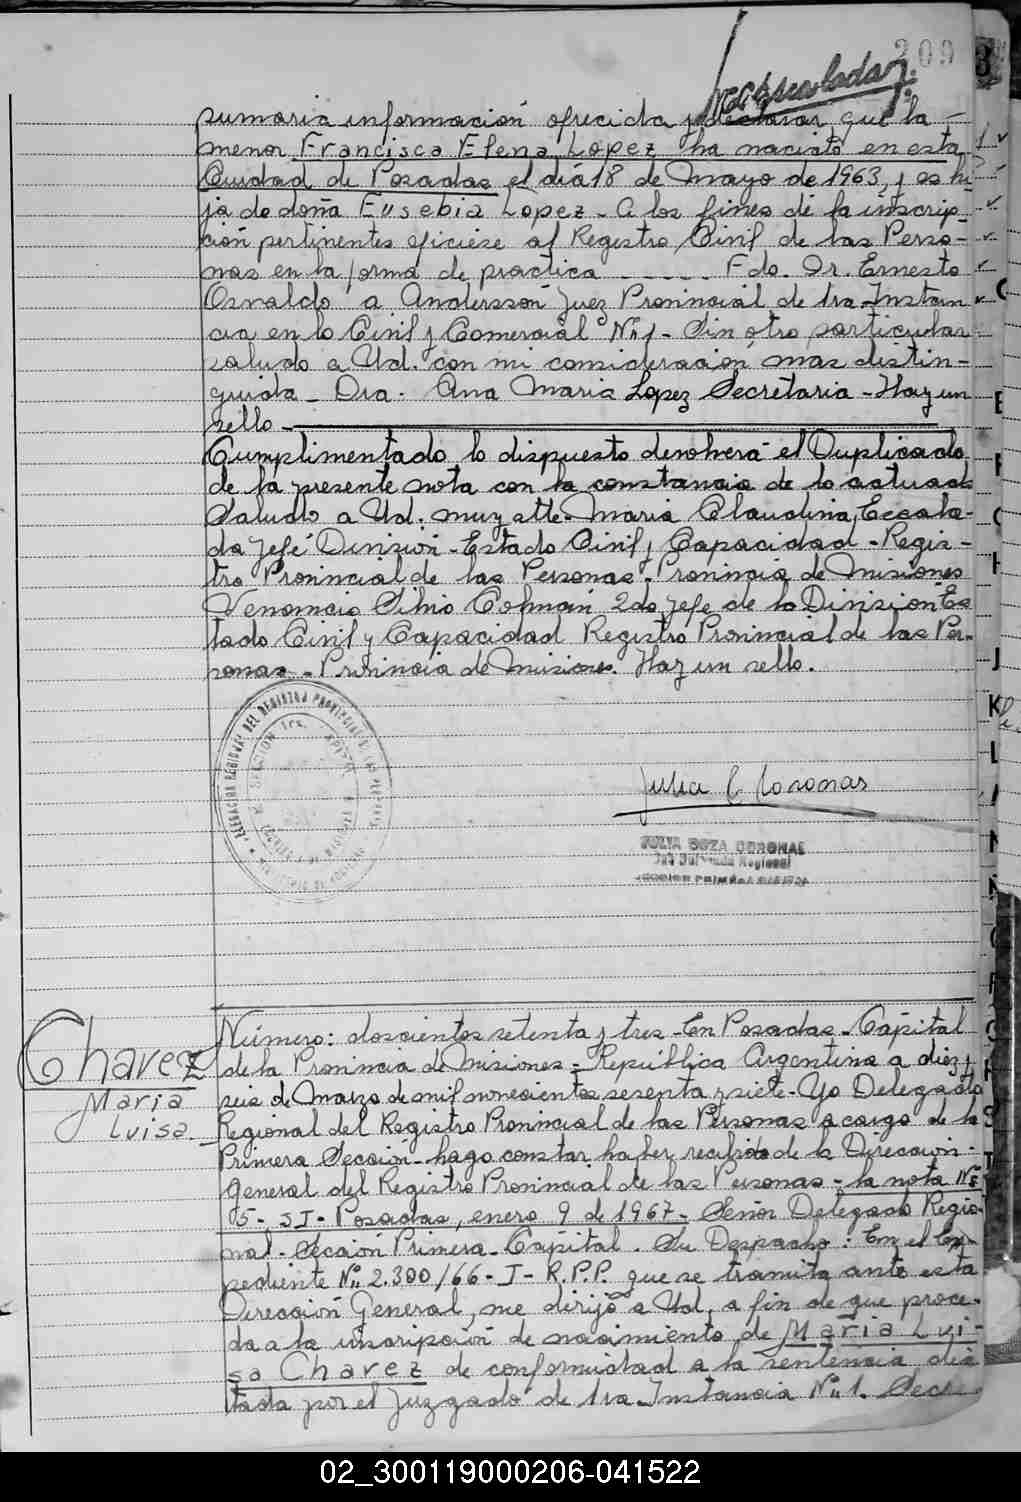 209
sumaria información ofrecida y declarar que la -
menor Francisca Elena Lopez ha nacido en esta
Ciudad de Posadas el día 18 de Mayo de 1963, y es hi
ja de doña Eusebia Lopez - A los fines de la inscrip
ción pertinentes oficiese al Registro Civil de las Perso-
nas en la forma de practica - - - - - Fdo. Dr. Ernesto
Osvaldo a Andersson Juez Provincial de 1ra Instan
cia en lo Civil y Comercial Nº 1 - Sin otro particular
saludo a Ud. con mi consideración mas distin-
guida - Dra. Ana Maria Lopez Secretaria - Hay un
sello -
Cumplimentado lo dispuesto devolverá el Duplicado
de la presente nota con la constancia de lo actuado
Saludo a Ud. muy atte - Maria Claudina Escala-
da Jefe División - Estado Civil y Capacidad - Regis-
tro Provincial de las Personas - Provincia de Misiones
Venancio Silvio Colman 2do Jefe de la Division Es
tado Civil y Capacidad Registro Provincial de las Per-
sonas - Provincia de Misiones. Hay un sello.
Julia C Coronas
JULIA COZA CORONAS
Chavez
Maria
Luisa -
Número: doscientos setenta y tres - En Posadas - Capital
de la Provincia de Misiones - República Argentina a diez y
seis de Marzo de mil novecientos sesenta y siete - Yo Delegado
Regional del Registro Provincial de las Personas a cargo de la
Primera Sección - hago constar haber recibido de la Dirección -
General del Registro Provincial de las Personas - la nota Nº
5 - SI - Posadas, enero 9 de 1967 - Señor Delegado Regio-
nal - Sección Primera - Capital. Su Despacho: En el Ex-
pediente Nº 2.300/66 - I - R.P.P. que se tramita ante esta
Dirección General, me dirijo a Ud, a fin de que proce-
da a la inscripción de nacimiento de Maria Lui-
sa Chavez de conformidad a la sentencia dic
tada por el Juzgado de 1ra Instancia Nº 1. Secr
02_300119000206-041522